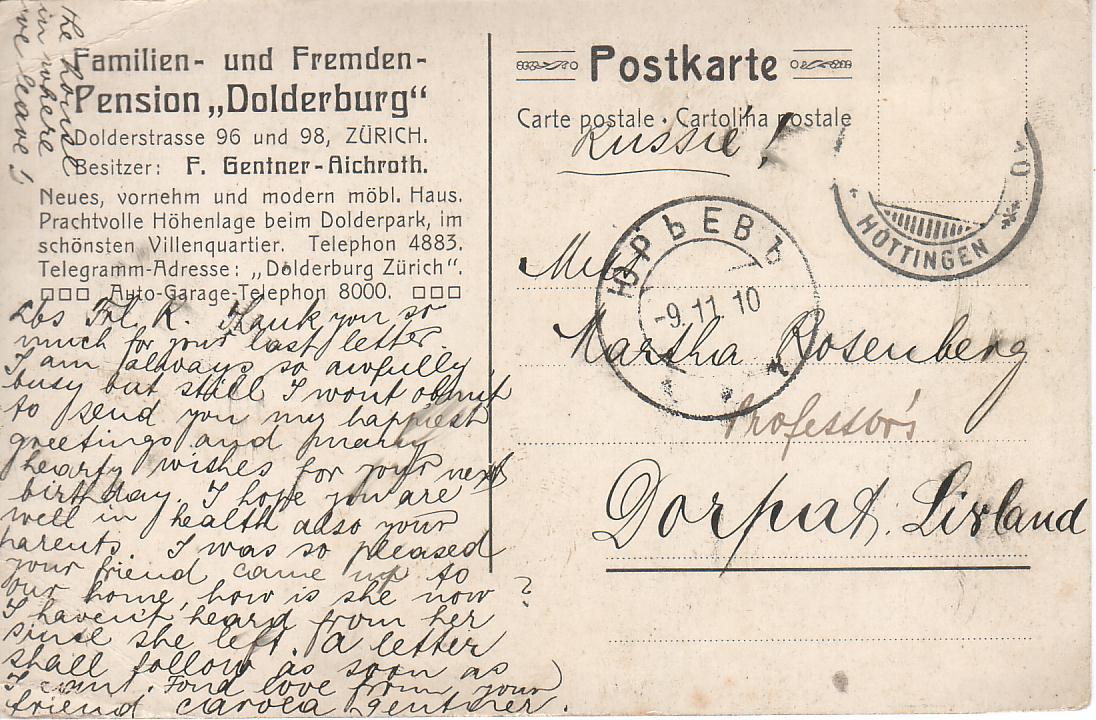 the house
in where
we leave!
Familien- und Fremden-
Pension „Dolderburg“
Dolderstrasse 96 und 98, ZÜRICH.
Besitzer: F. Gentner-Aichroth.
Neues, vornehm und modern möbl. Haus.
Prachtvolle Höhenlage beim Dolderpark, im
schönsten Villenquartier. Telephon 4883.
Telegramm-Adresse: „Dolderburg Zürich“.
□□□ Auto-Garage-Telephon 8000. □□□
Lbs Frl. R. Thank you so
much for your last letter.
I am always so awfully
busy but still I wont obmit
to send you my happiest
greetings and many
hearty wishes for your next
birthday. I hope you are
well in health also your
parents. I was so pleased
your friend came up to
our home, how is she now?
I haven't heard from her
since she left. A letter
shall follow as soon as
I can. Fond love from your
friend Carola Gentner.
Postkarte
Carte postale · Cartolina postale
Russie!
HOTTINGEN
ЮРЬЕВЪ
-9.11.10
Miss
Martha Rosenberg
Professor's
Dorpat. Livland